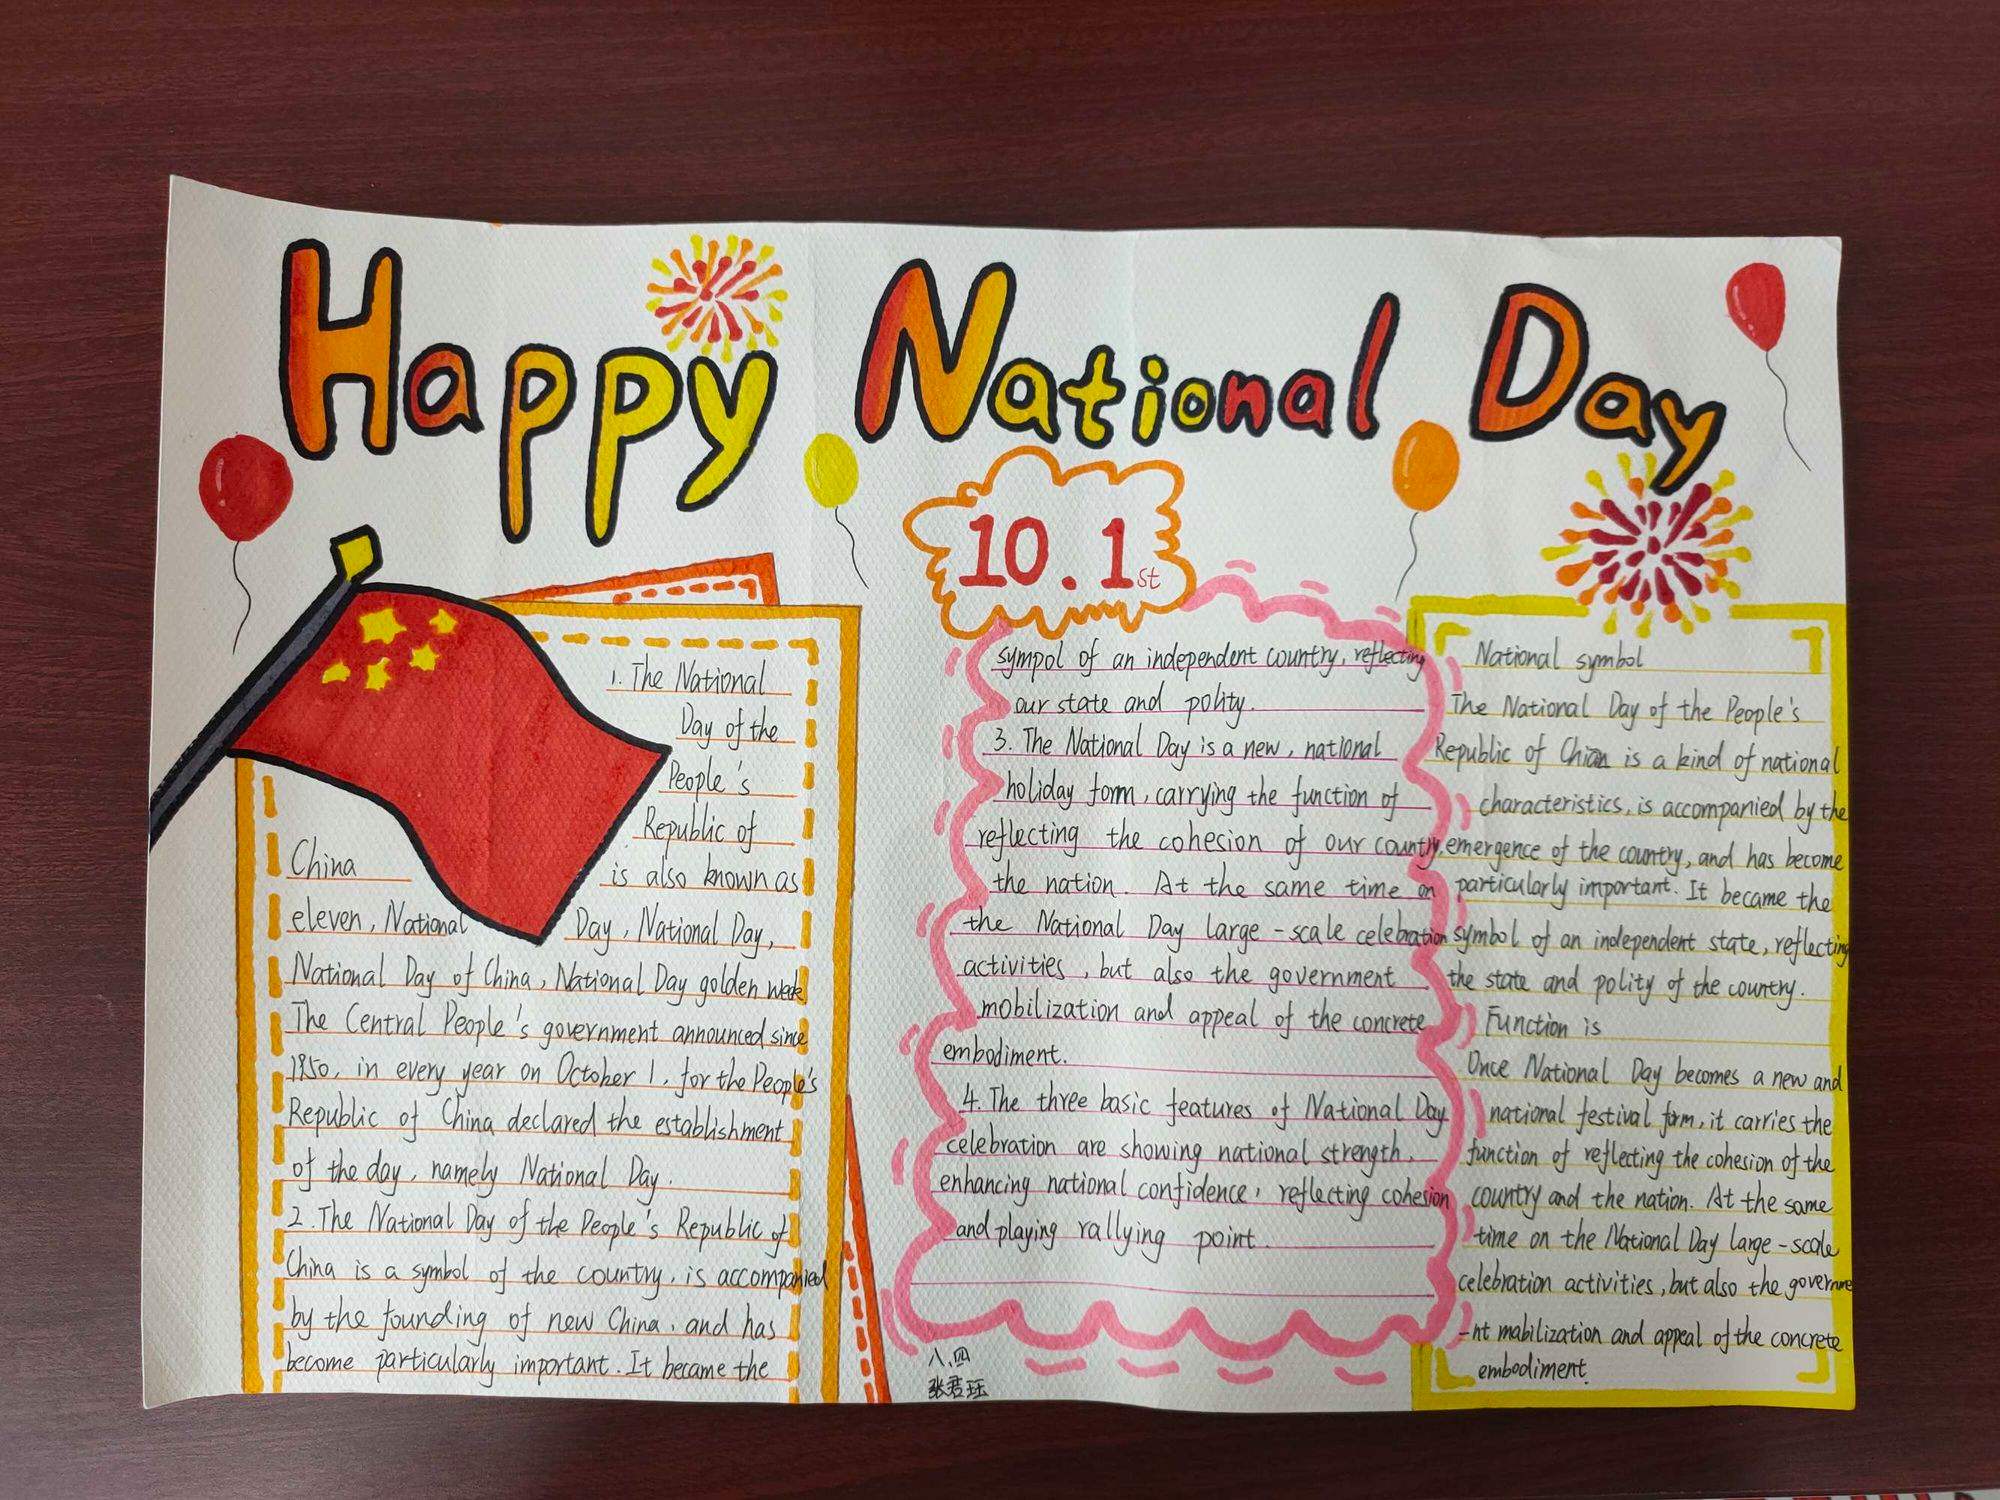 Happy National Day
10.1st
1. The National
Day of the
People's
Republic of
China is also known as
eleven, National Day, National Day,
National Day of China, National Day golden week
The Central People's government announced since
1950, in every year on October 1, for the People's
Republic of China declared the establishment
of the day, namely National Day.
2. The National Day of the People's Republic of
China is a symbol of the country, is accompanied
by the founding of new China, and has
become particularly important. It became the
sympol of an independent country, reflecting
our state and polity.
3. The National Day is a new, national
holiday form, carrying the function of
reflecting the cohesion of our country,
the nation. At the same time on
the National Day large-scale celebration
activities, but also the government
mobilization and appeal of the concrete
embodiment.
4. The three basic features of National Day
celebration are showing national strength,
enhancing national confidence, reflecting cohesion
and playing rallying point.
八、四
张君珏
National symbol
The National Day of the People's
Republic of is a kind of national
characteristics, is accompanied by the
emergence of the country, and has become
particularly important. It became the
symbol of an independent state, reflecting
the state and polity of the country.
Function is
Once National Day becomes a new and
national festival form, it carries the
function of reflecting the cohesion of the
country and the nation. At the same
time on the National Day large-scale
celebration activities, but also the governme
-nt mabilization and appeal of the concrete
embodiment.